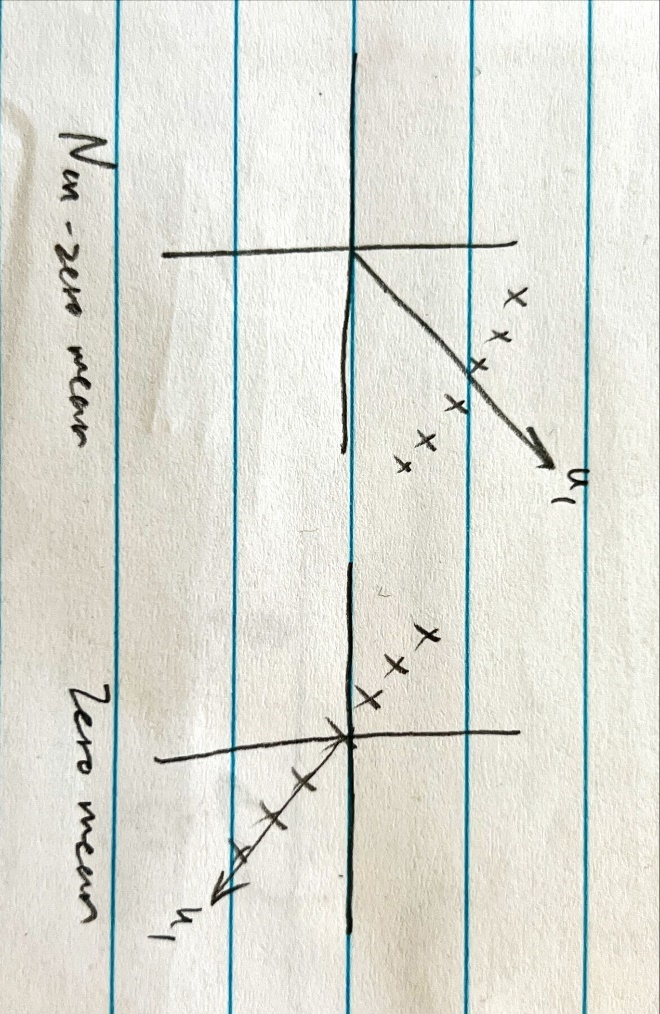 u1
Non-zero mean
u1
Zero mean